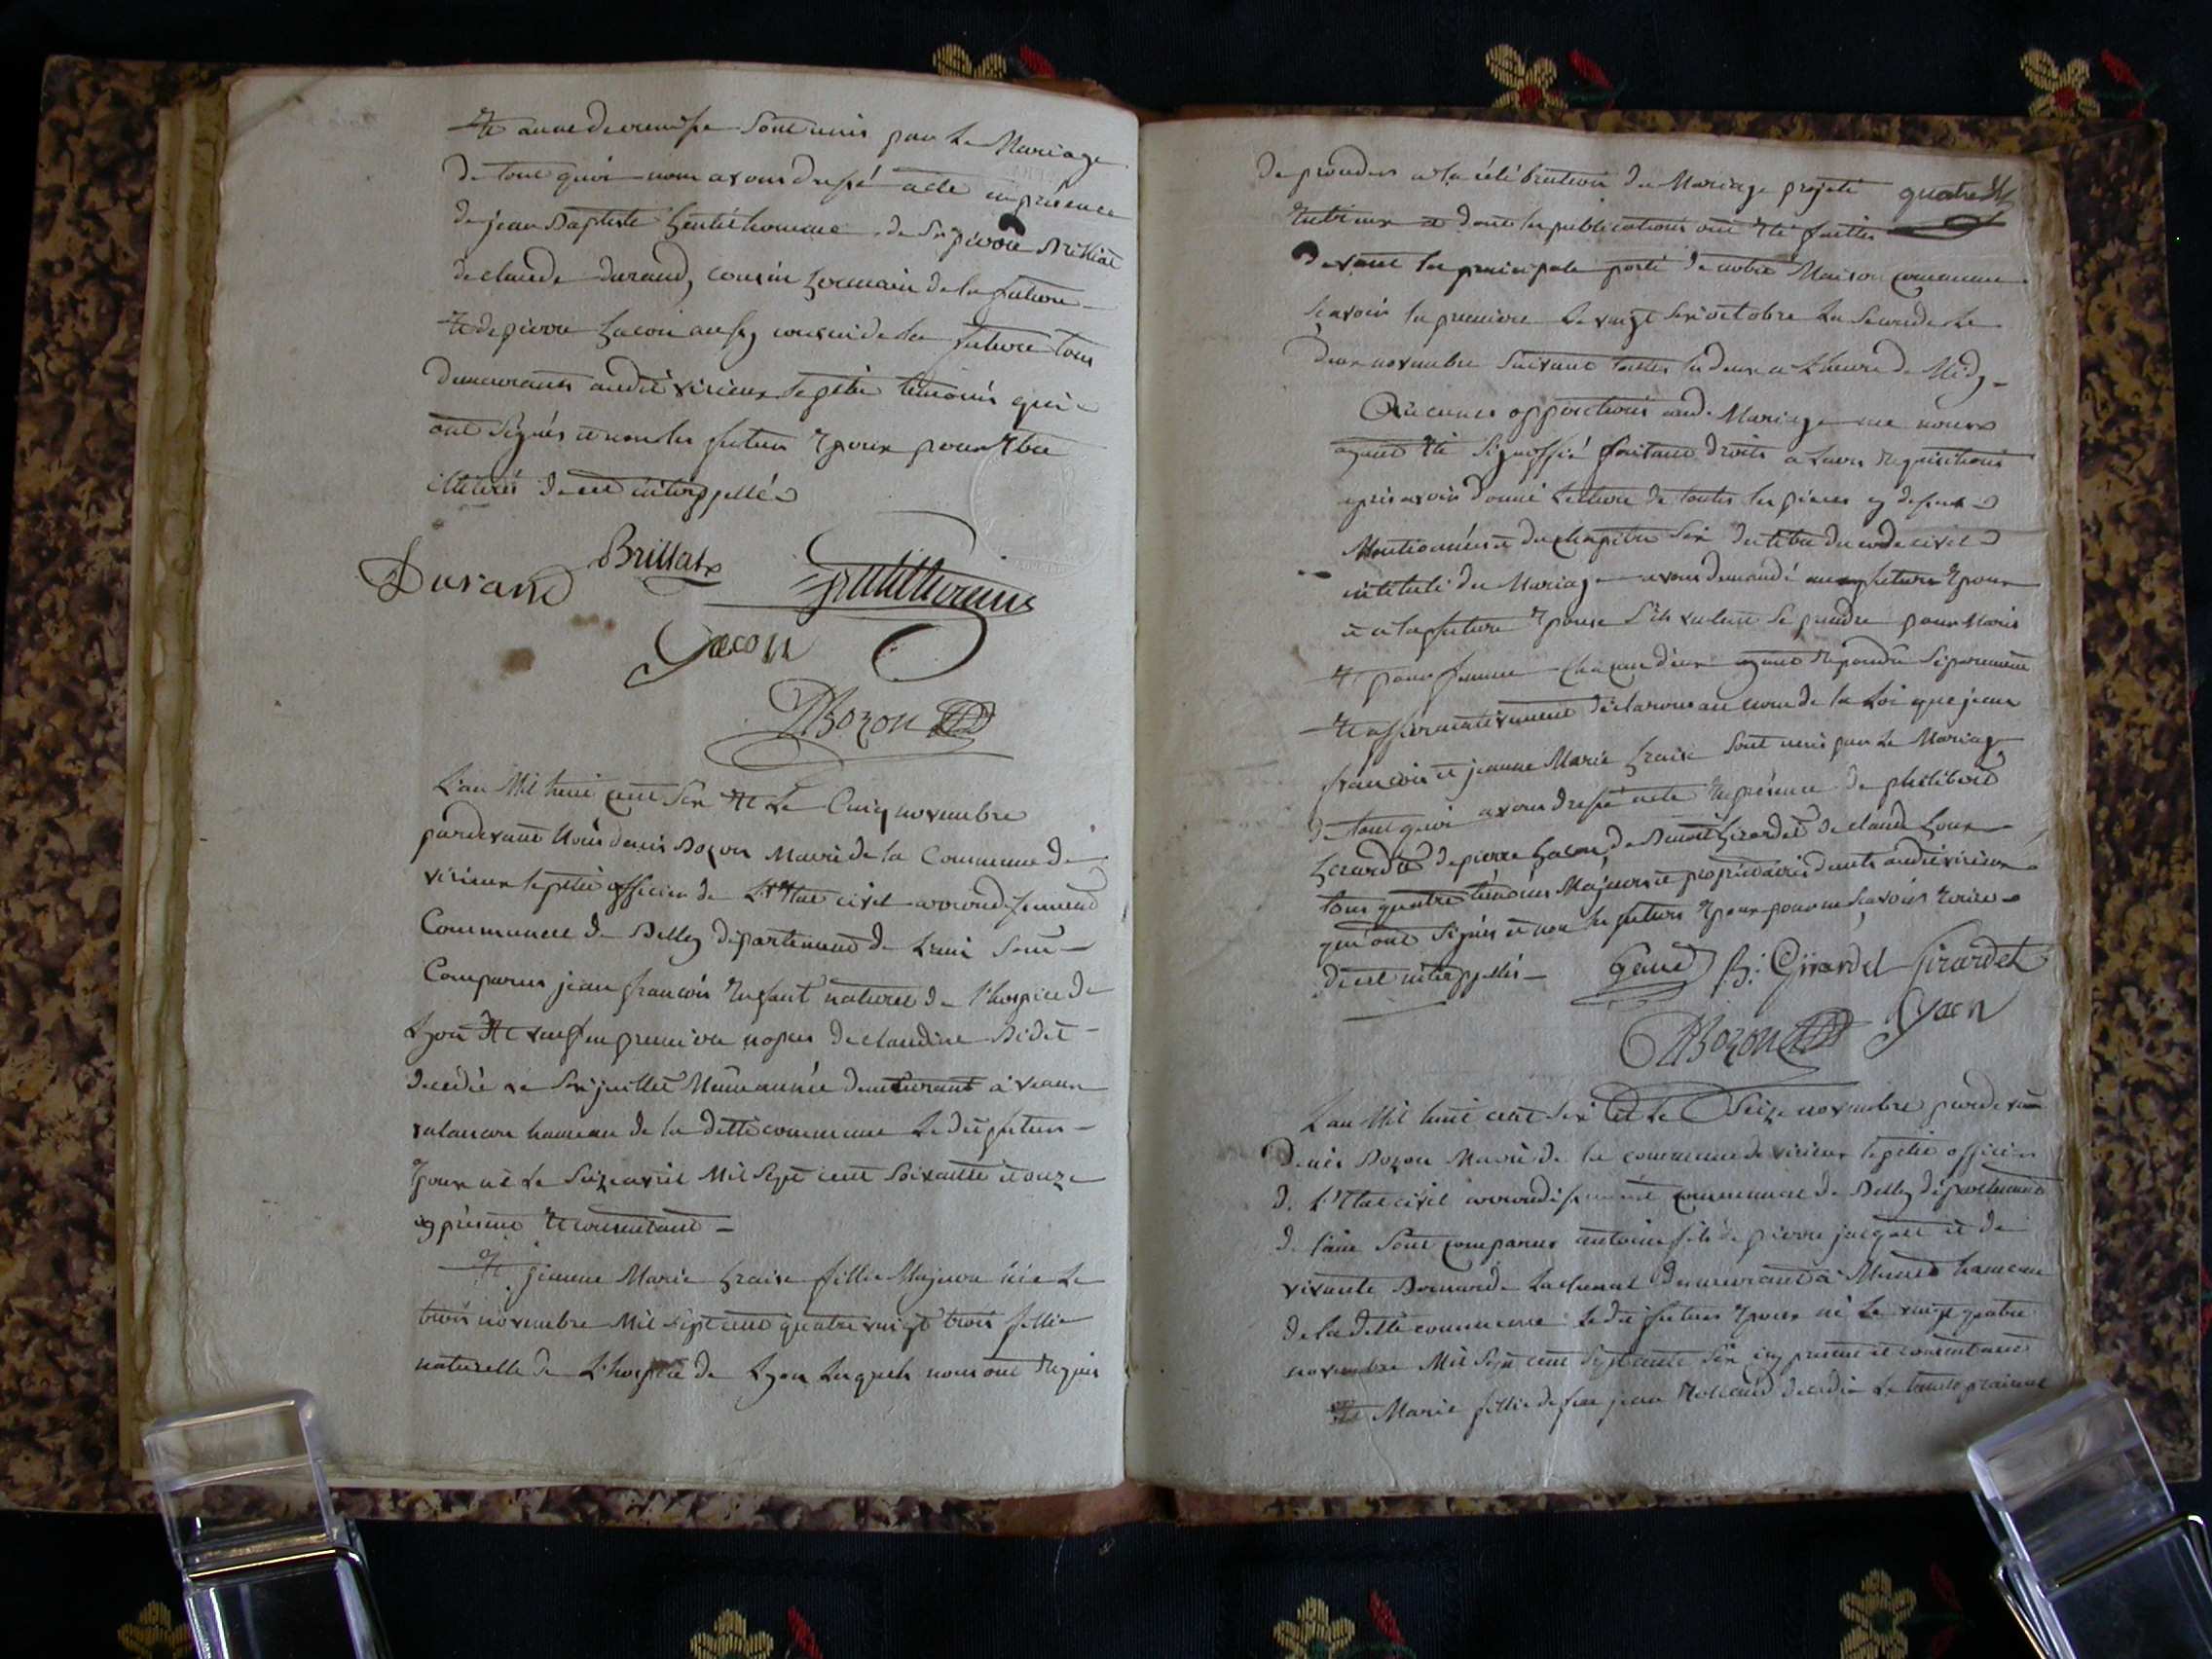 et anne devenisse sont unis par le Mariage
de tout quoi nous avons dressé acte en présence
de jean Baptiste Gentilhomme de Sr pierre Brillat
de claude durand, cousin Germain de la future
et de pierre Gacon aussy cousin de la future tous
demeurants audit virieux le petit témoins qui
ont signés et non les futurs Epoux pour Etre
illiterés de ce interppellés
Durand Brillat Gentilhomme
Gacon
D Bozon
L'an Mil huit cent six et le Cinq novembre
pardevant Nous denis Bozon Maire de la Commune de
virieux le petit officier de l'Etat civil arrondissement
Communal de Belley département de l'ain sont
Comparus jean françois Enfant naturel de l'hospice de
Lyon et veuf en premiere nopces de claudine Didit
decédée le six juillet Même année demeurant à vaux
valancon hameau de la dette commune le dit futur
Epoux né le seize avril Mil sept cent soixante et onze
cy présent et consentant
Et jeanne Marie fraise fillie Majeure née le
trois novembre Mil sept cent quatre vingt trois fillie
naturelle de L'hospice de Lyon lesquels nous ont requis
de proceder a la célébration du Mariage projeté quatre
Entreux et dont les publications ont été faittes
devant la principale porte de notre Maison commune
sçavoir la premiere le vingt six octobre la seconde le
deux novembre suivant toutes les deux a L'heure de Midy
Aucunes oppositions aud. Mariage ne nous
ayant été signiffié faisant droits a leurs requisitions
apres avoir donné lecture de toutes les pieces cy dessus
Mentionnées et du chapitre six du titre du code civil
intitulé du Mariage avons demandé au futur Epoux
et a la future Epouse s'ils veulent se prendre pour Maris
et pour femme chacun d'eux ayant repondu séparement
et affirmativement déclarons au nom de la Loi que jean
françois et jeanne Marie fraise sont unis par le Mariage
de tout quoi avons dressé acte En présence de philibert
Girardet de pierre Gacon de Benoit Girardet de claude
tous quatre témoins Majeurs et propriétaires audit virieux
qui ont signés et non les futurs Epoux pour ne sçavoir Ecrire
de ce interppellés B. Girardet Girardet
D Bozon Gacon
L'an Mil huit cent six et le Seize novembre pardevant
Denis Bozon Maire de la commune de virieux le petit officier
de L'Etat civil arrondissement communal de Belley département
de l'ain sont comparus antoine fils de pierre jacquet et de
vivante Bernarde Lachenal demeurant à Munet hameau
de la dette commune le dit futur Epoux né le vingt quatre
novembre Mil sept cent septante six cy présent et consentant
Et Marie fillie de feu jean decedé le trente prairial